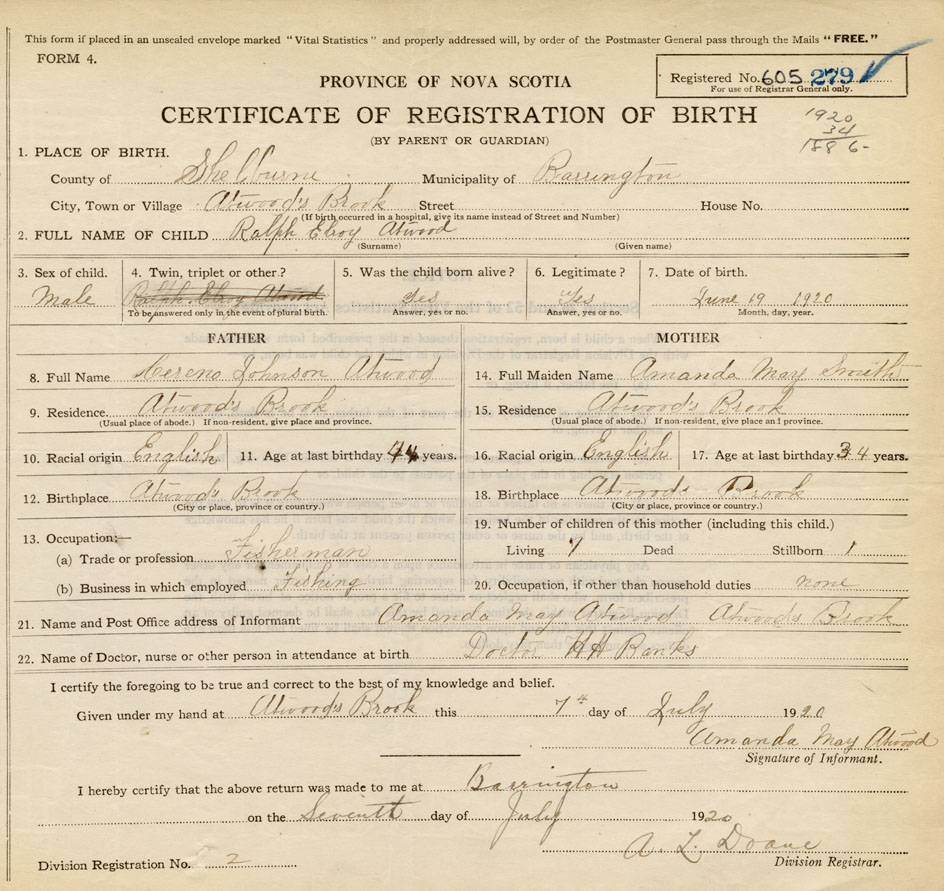 This form if placed in an unsealed envelope marked "Vital Statistics" and properly addressed will, by order of the Postmaster General pass through the Mails "FREE."
FORM 4.
Registered No. 605 279
For use of Registrar General only.
PROVINCE OF NOVA SCOTIA
CERTIFICATE OF REGISTRATION OF BIRTH
1920
34
1886
(BY PARENT OR GUARDIAN)
1. PLACE OF BIRTH.
County of Shelburne Municipality of Barrington
City, Town or Village Atwood's Brook Street House No.
(If birth occurred in a hospital, give its name instead of Street and Number)
2. FULL NAME OF CHILD Ralph Elroy Atwood
(Surname) (Given name)
3. Sex of child. 4. Twin, triplet or other? 5. Was the child born alive? 6. Legitimate? 7. Date of birth.
Male Ralph Elroy Atwood Yes Yes June 19 1920
To be answered only in the event of plural birth. Answer, yes or no. Answer, yes or no. Month, day, year.
FATHER MOTHER
8. Full Name Cereno Johnson Atwood 14. Full Maiden Name Amanda May Smith
9. Residence. Atwood's Brook 15. Residence Atwood's Brook
(Usual place of abode.) If non-resident, give place and province. (Usual place of abode.) If non-resident, give place and province.
10. Racial origin English 11. Age at last birthday 44 years. 16. Racial origin English 17. Age at last birthday 34 years.
12. Birthplace Atwood's Brook 18. Birthplace Atwood's Brook
(City or place, province or country.) (City or place, province or country.)
13. Occupation:— 19. Number of children of this mother (including this child.)
(a) Trade or profession Fisherman Living 7 Dead Stillborn 1
(b) Business in which employed Fishing 20. Occupation, if other than household duties none
21. Name and Post Office address of Informant Amanda May Atwood Atwood's Brook
22. Name of Doctor, nurse or other person in attendance at birth Doctor H H Banks
I certify the foregoing to be true and correct to the best of my knowledge and belief.
Given under my hand at Atwood's Brook this 7th day of July 1920
Amanda May Atwood
Signature of Informant.
I hereby certify that the above return was made to me at Barrington
on the Seventh day of July 1920
A. L. Doane
Division Registration No. 2 Division Registrar.